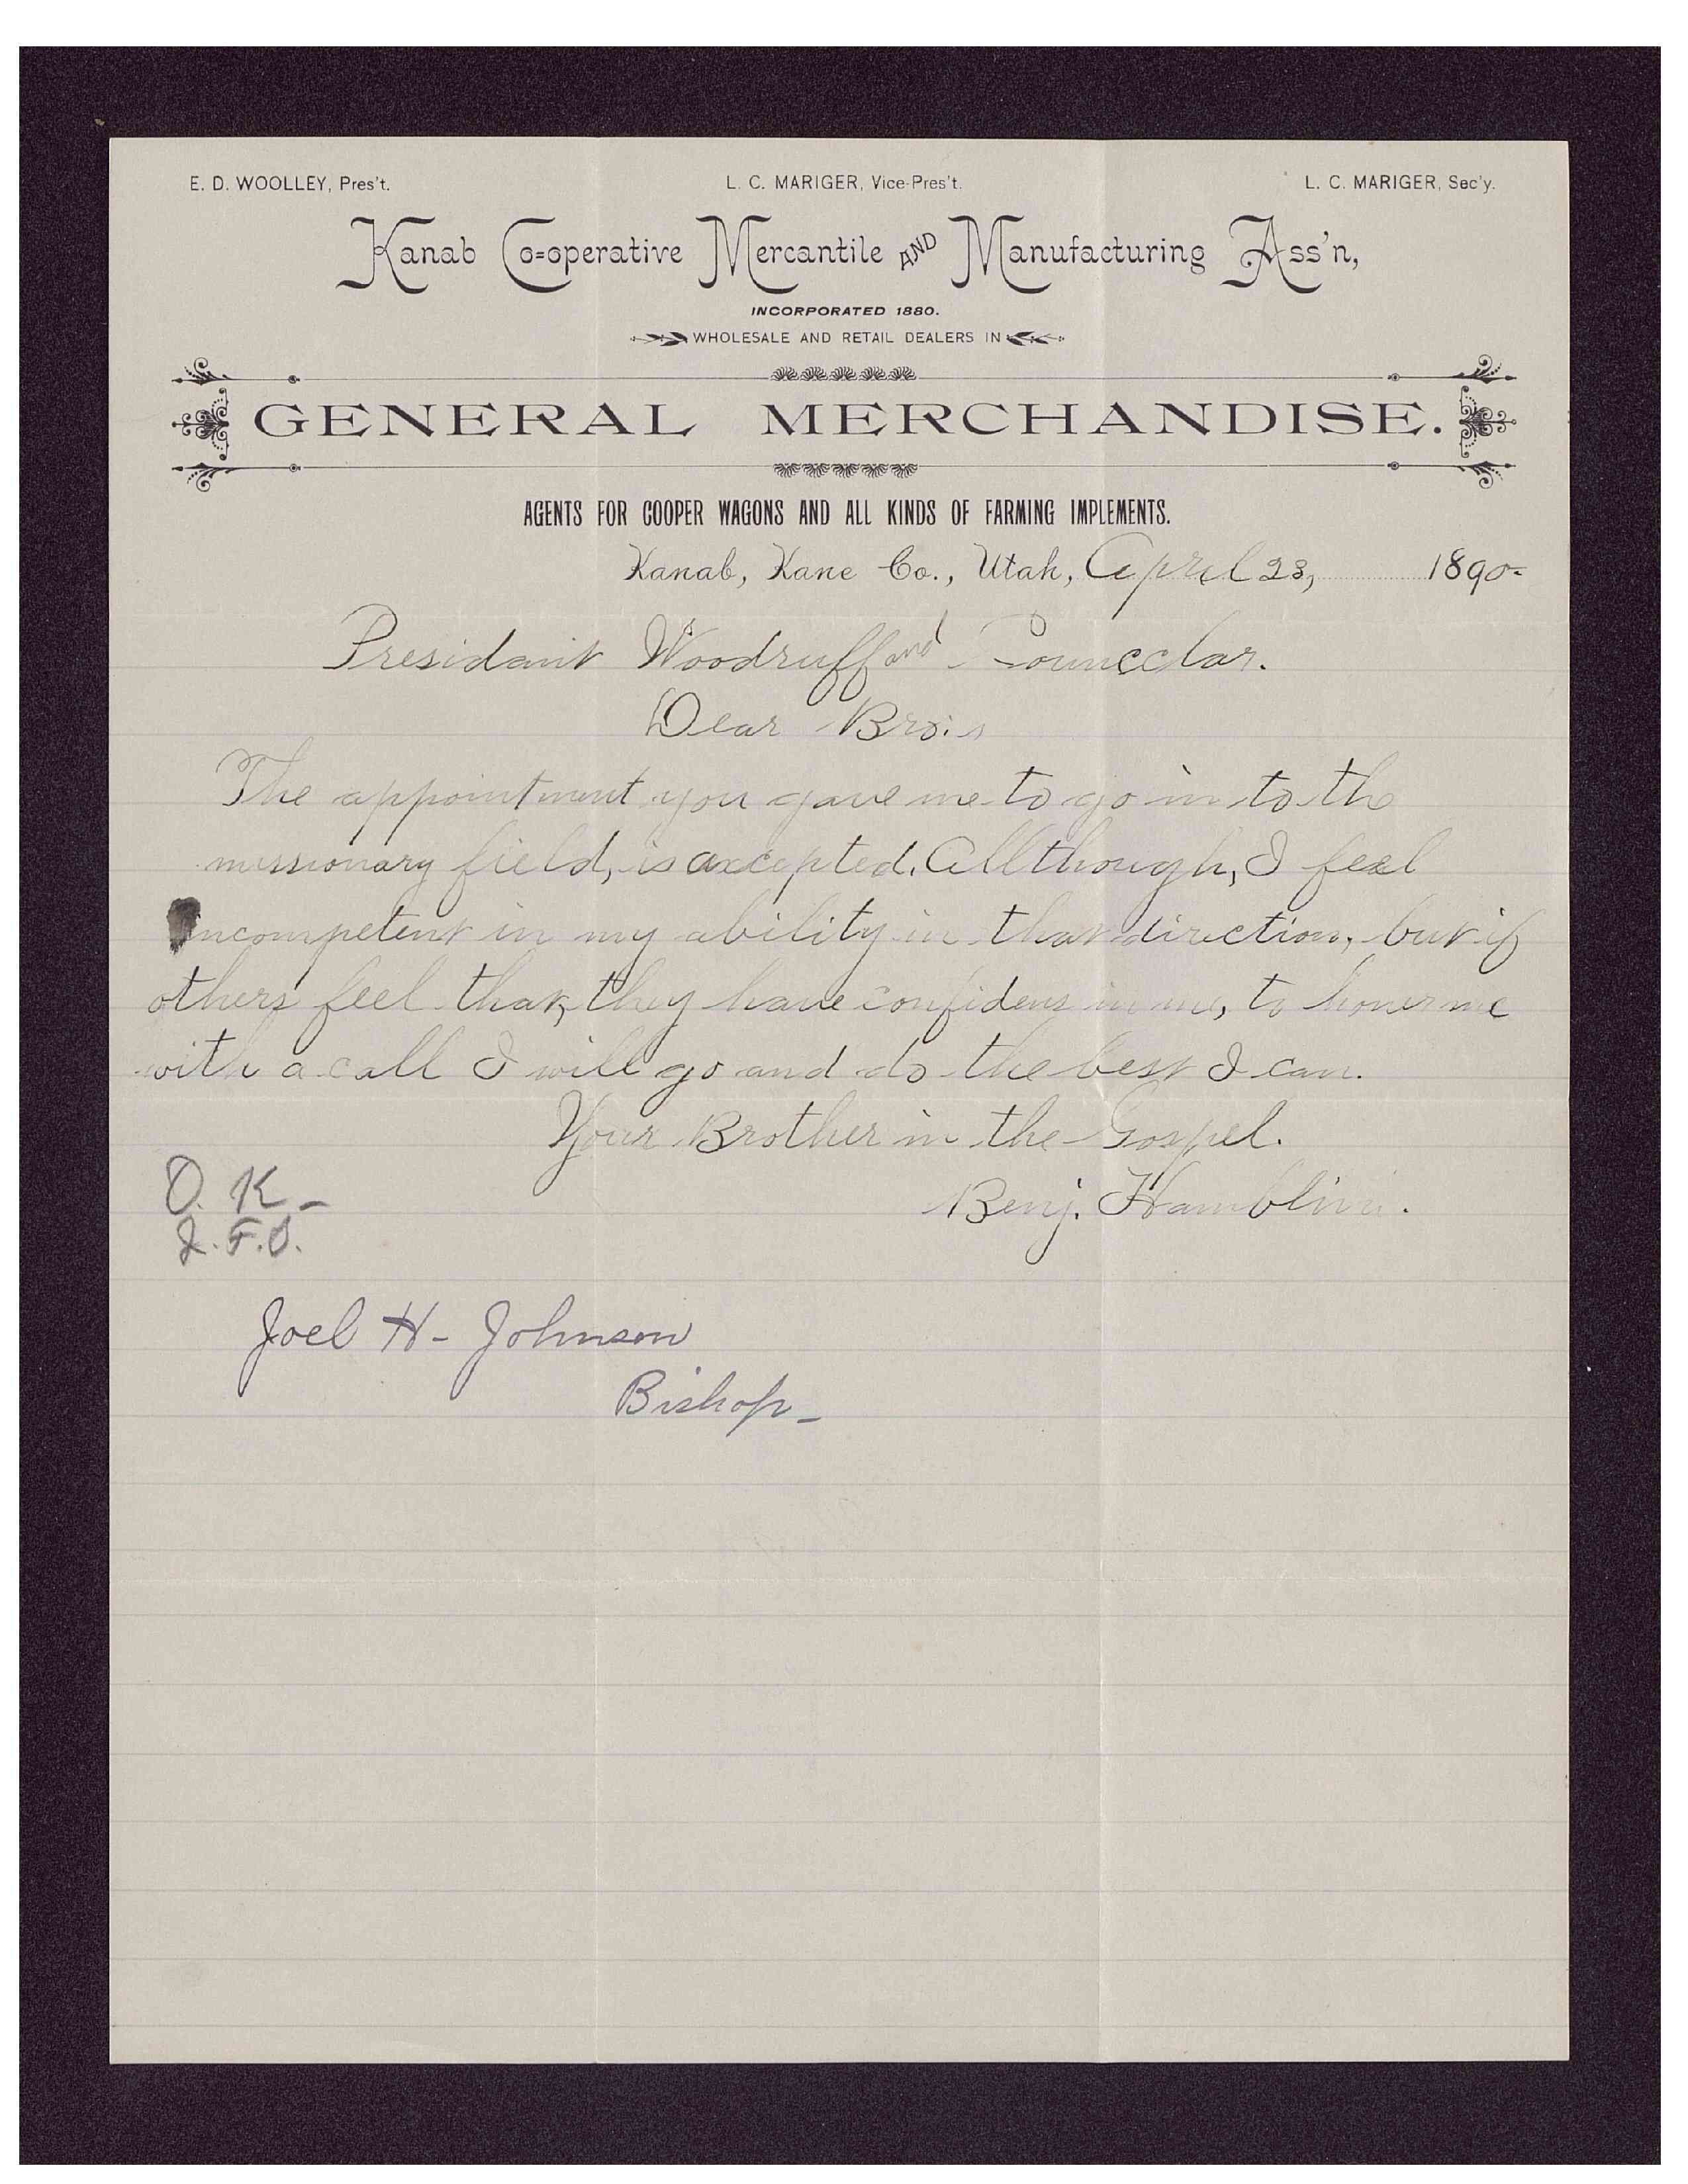 E. D. WOOLLEY, Pres't. L. C. MARIGER, Vice-Pres't. L. C. MARIGER, Sec'y.
Kanab Co=operative Mercantile AND Manufacturing Ass'n,
INCORPORATED 1880.
WHOLESALE AND RETAIL DEALERS IN
GENERAL MERCHANDISE.
AGENTS FOR COOPER WAGONS AND ALL KINDS OF FARMING IMPLEMENTS.
Kanab, Kane Co., Utah, April 23, 1890-
Presidant Woodruff and Councclar.
Dear Bro.s
The appointment you gave me to go in to the
missionary field, is axcepted. Allthough, I feel
Incompetent in my ability in that direction, but if
others feel that, they have confidens in me, to honer me
with a call I will go and do the best I can.
Your Brother in the Gospel.
Benj. Hamblin.
O. K-
J. F. S.
Joel H- Johnson
Bishop-